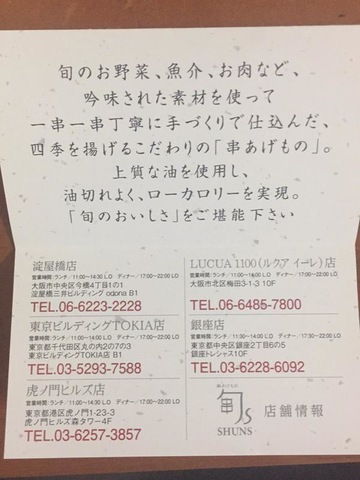 旬のお野菜、魚介、お肉など、
吟味された素材を使って
一串一串丁寧に手づくりで仕込んだ、
四季を揚げるこだわりの「串あげもの」。
上質な油を使用し、
油切れよく、ローカロリーを実現。
「旬のおいしさ」をご堪能下さい
淀屋橋店
営業時間:ランチ/11:00〜14:30 LO ディナー/17:00〜22:00 LO
大阪市中央区今橋4丁目1の1
淀屋橋三井ビルディング odona B1
TEL.06-6223-2228
LUCUA 1100 (ルクア イーレ) 店
営業時間:ランチ/11:00〜14:00 LO ディナー/17:00〜22:00 LO
大阪市北区梅田3-1-3 10F
TEL.06-6485-7800
東京ビルディングTOKIA店
営業時間:ランチ/11:00〜14:00 LO ディナー/17:00〜22:00 LO
東京都千代田区丸の内2の7の3
東京ビルディングTOKIA店 B1
TEL.03-5293-7588
銀座店
営業時間:ランチ/11:30〜14:00 LO ディナー/17:00〜22:00 LO
東京都中央区銀座2丁目6の5
銀座トレシャス10F
TEL.03-6228-6092
虎ノ門ヒルズ店
営業時間:ランチ/11:00〜14:00 LO ディナー/17:00〜22:00 LO
東京都港区虎ノ門1-23-3
虎ノ門ヒルズ森タワー4F
TEL.03-6257-3857
串あげもの
旬s
SHUNS
店舗情報